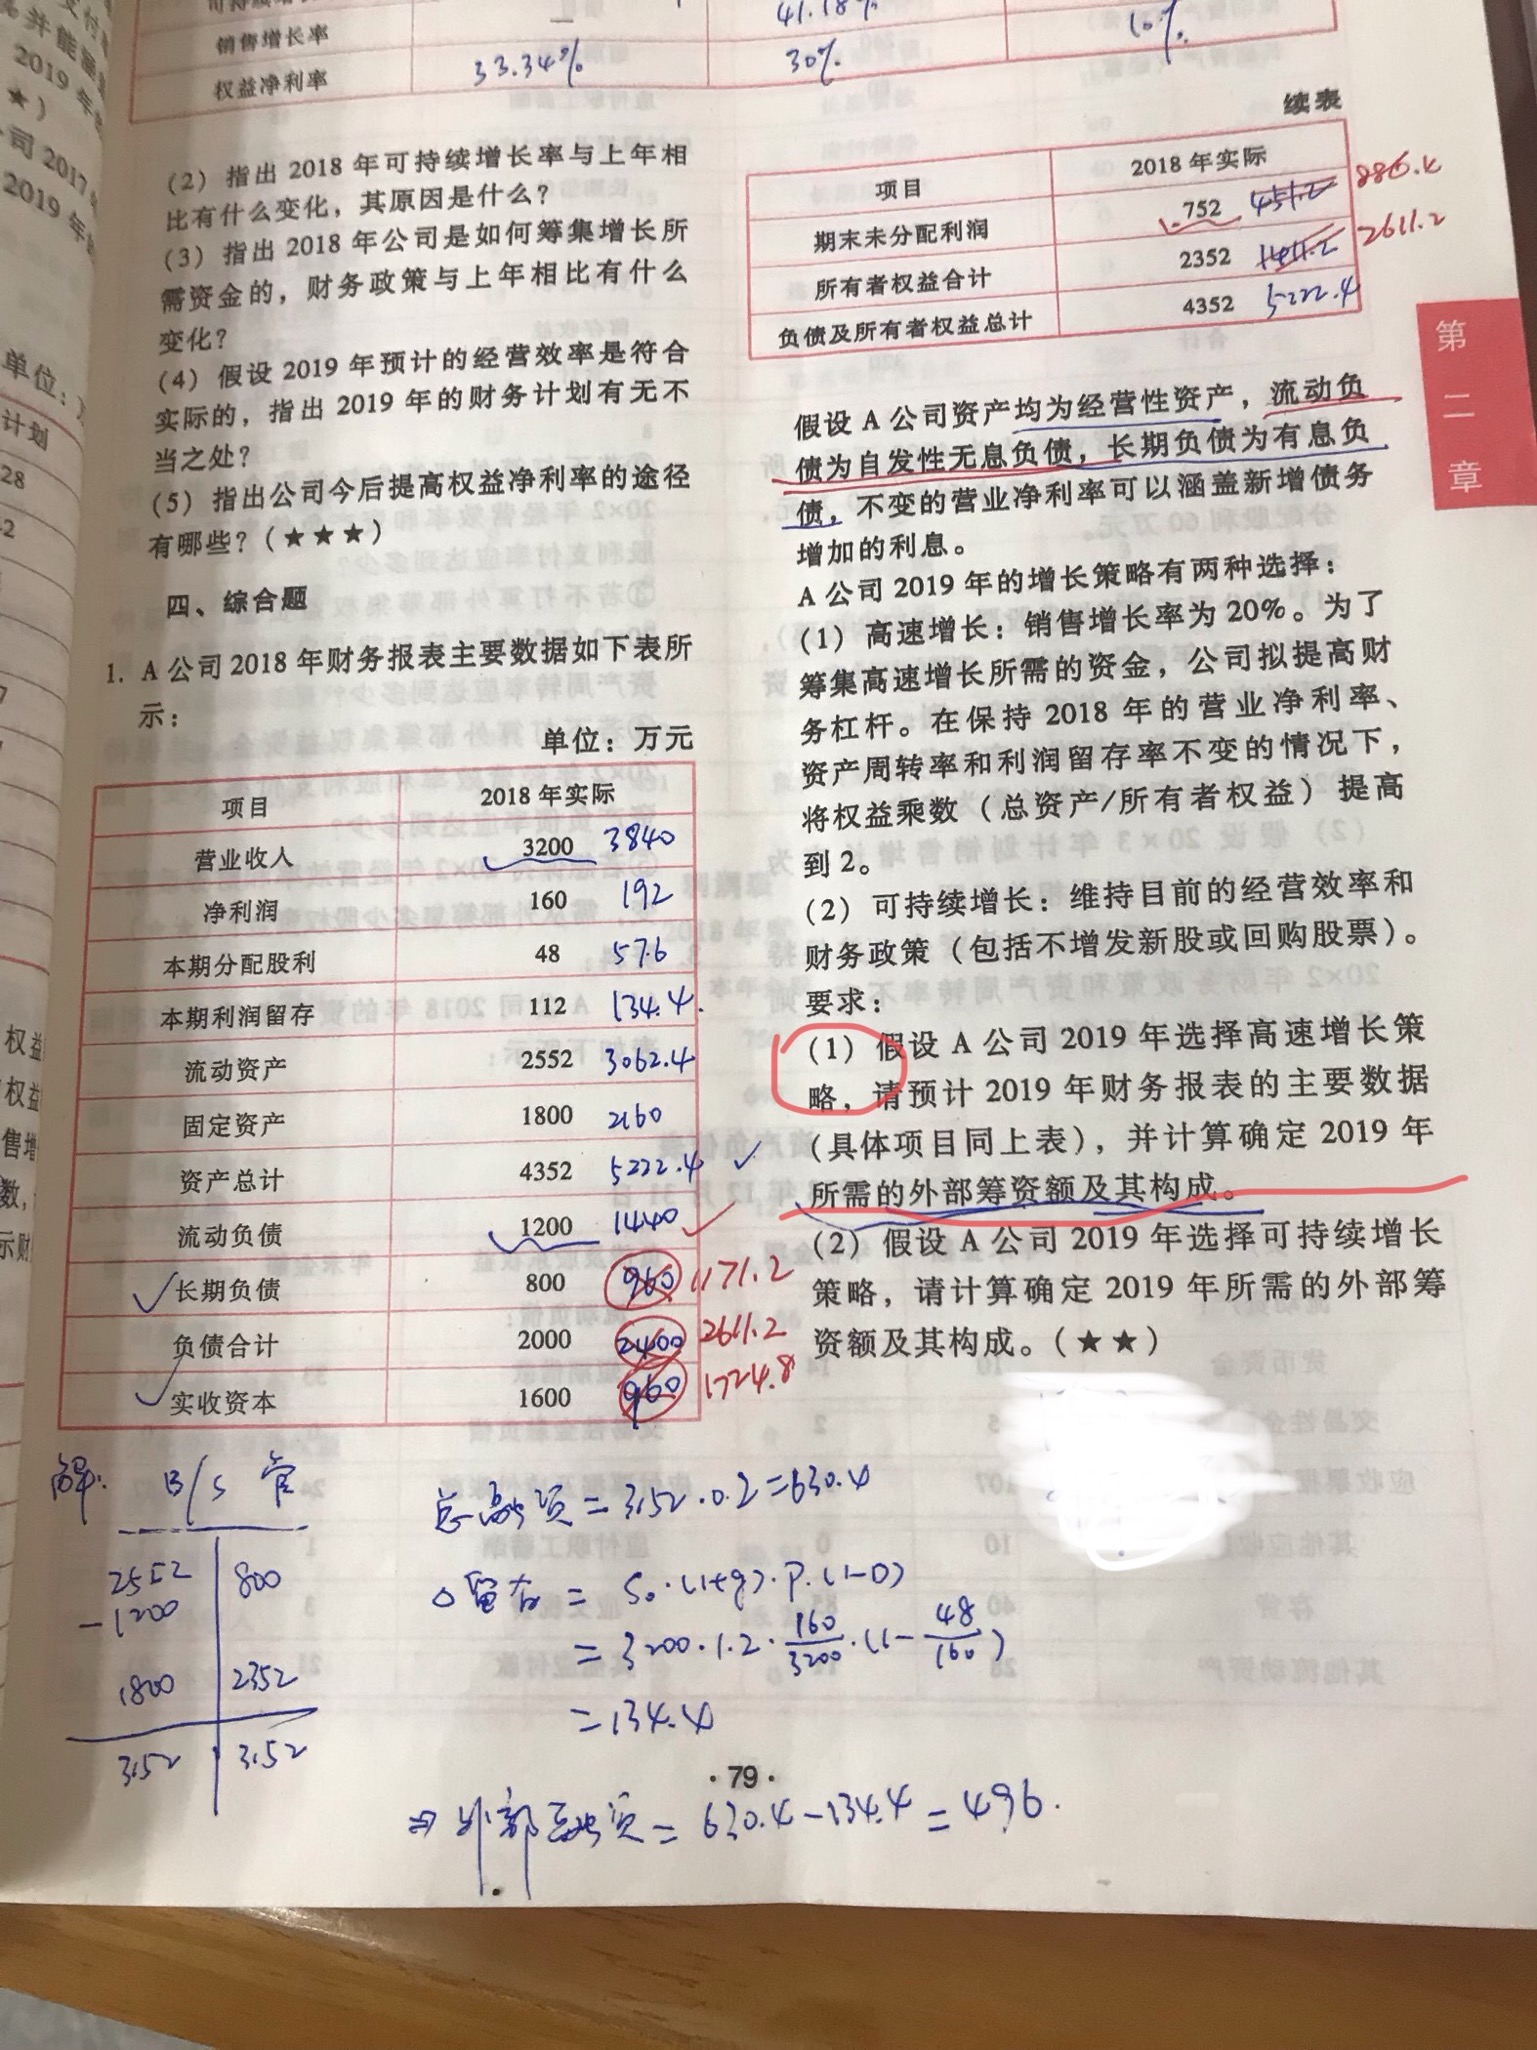 销售增长率 — 41.18% 10%
权益净利率 33.34% 30%
(2) 指出 2018 年可持续增长率与上年相
比有什么变化，其原因是什么？
(3) 指出 2018 年公司是如何筹集增长所
需资金的，财务政策与上年相比有什么
变化？
(4) 假设 2019 年预计的经营效率是符合
实际的，指出 2019 年的财务计划有无不
当之处？
(5) 指出公司今后提高权益净利率的途径
有哪些？(★★★)
四、综合题
1. A 公司 2018 年财务报表主要数据如下表所
示：
单位：万元
项目 2018 年实际
营业收入 3200 3840
净利润 160 192
本期分配股利 48 57.6
本期利润留存 112 134.4.
流动资产 2552 3062.4
固定资产 1800 2160
资产总计 4352 5222.4
流动负债 1200 1440
长期负债 800 960 1171.2
负债合计 2000 2400 2611.2
实收资本 1600 960 1724.8
续表
项目 2018 年实际
期末未分配利润 752 451.2 886.4
所有者权益合计 2352 1411.2 2611.2
负债及所有者权益总计 4352 5222.4
假设 A 公司资产均为经营性资产，流动负
债为自发性无息负债，长期负债为有息负
债，不变的营业净利率可以涵盖新增债务
增加的利息。
A 公司 2019 年的增长策略有两种选择：
(1) 高速增长：销售增长率为 20%。为了
筹集高速增长所需的资金，公司拟提高财
务杠杆。在保持 2018 年的营业净利率、
资产周转率和利润留存率不变的情况下，
将权益乘数（总资产/所有者权益）提高
到 2。
(2) 可持续增长：维持目前的经营效率和
财务政策（包括不增发新股或回购股票）。
要求：
(1) 假设 A 公司 2019 年选择高速增长策
略，请预计 2019 年财务报表的主要数据
（具体项目同上表），并计算确定 2019 年
所需的外部筹资额及其构成。
(2) 假设 A 公司 2019 年选择可持续增长
策略，请计算确定 2019 年所需的外部筹
资额及其构成。(★★)
第
二
章
解： B/S 管
2552 800
-1200
1800 2352
3152 3152
总融资 = 3152·0.2 = 630.4
△留存 = S₀·(1+g)·P·(1-D)
= 3200·1.2·160/3200·(1-48/160)
= 134.4
·79·
⇒ 外部融资 = 630.4-134.4 = 496.